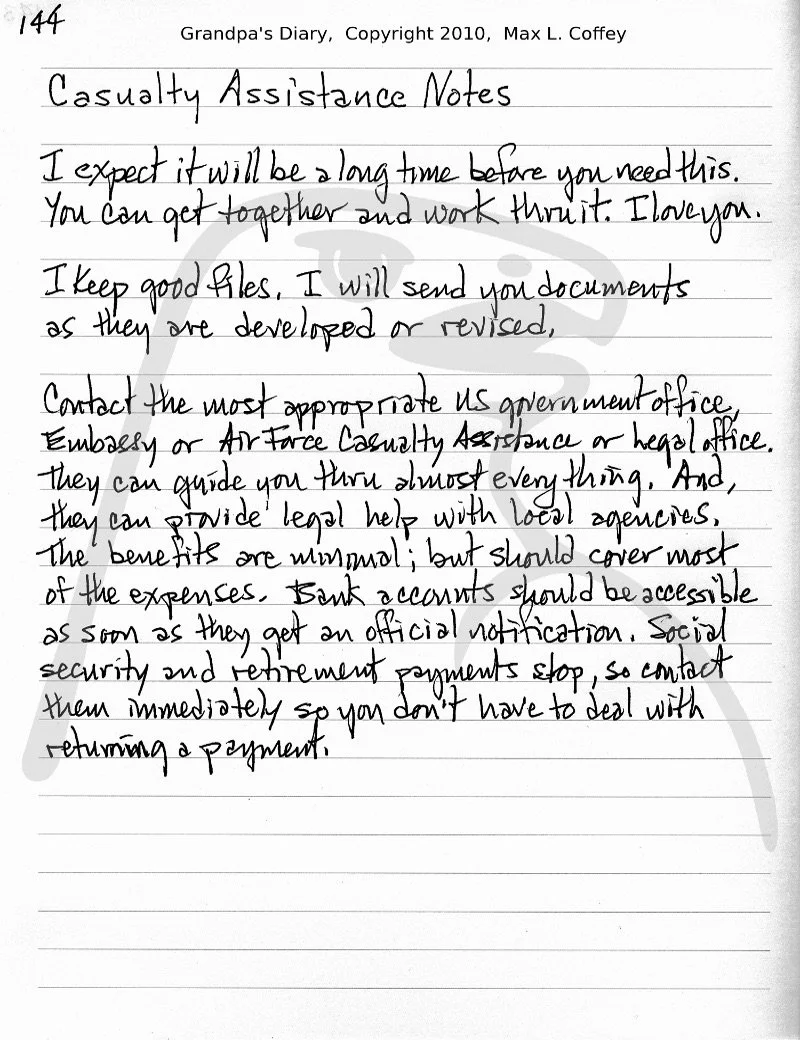 144
Grandpa's Diary, Copyright 2010, Max L. Coffey
Casualty Assistance Notes
I expect it will be a long time before you need this.
You can get together and work thru it. I love you.
I keep good files. I will send you documents
as they are developed or revised.
Contact the most appropriate US government office,
Embassy or Air Force Casualty Assistance or Legal office.
They can guide you thru almost everything. And,
they can provide legal help with local agencies.
The benefits are minimal; but should cover most
of the expenses. Bank accounts should be accessible
as soon as they get an official notification. Social
security and retirement payments stop, so contact
them immediately so you don't have to deal with
returning a payment.